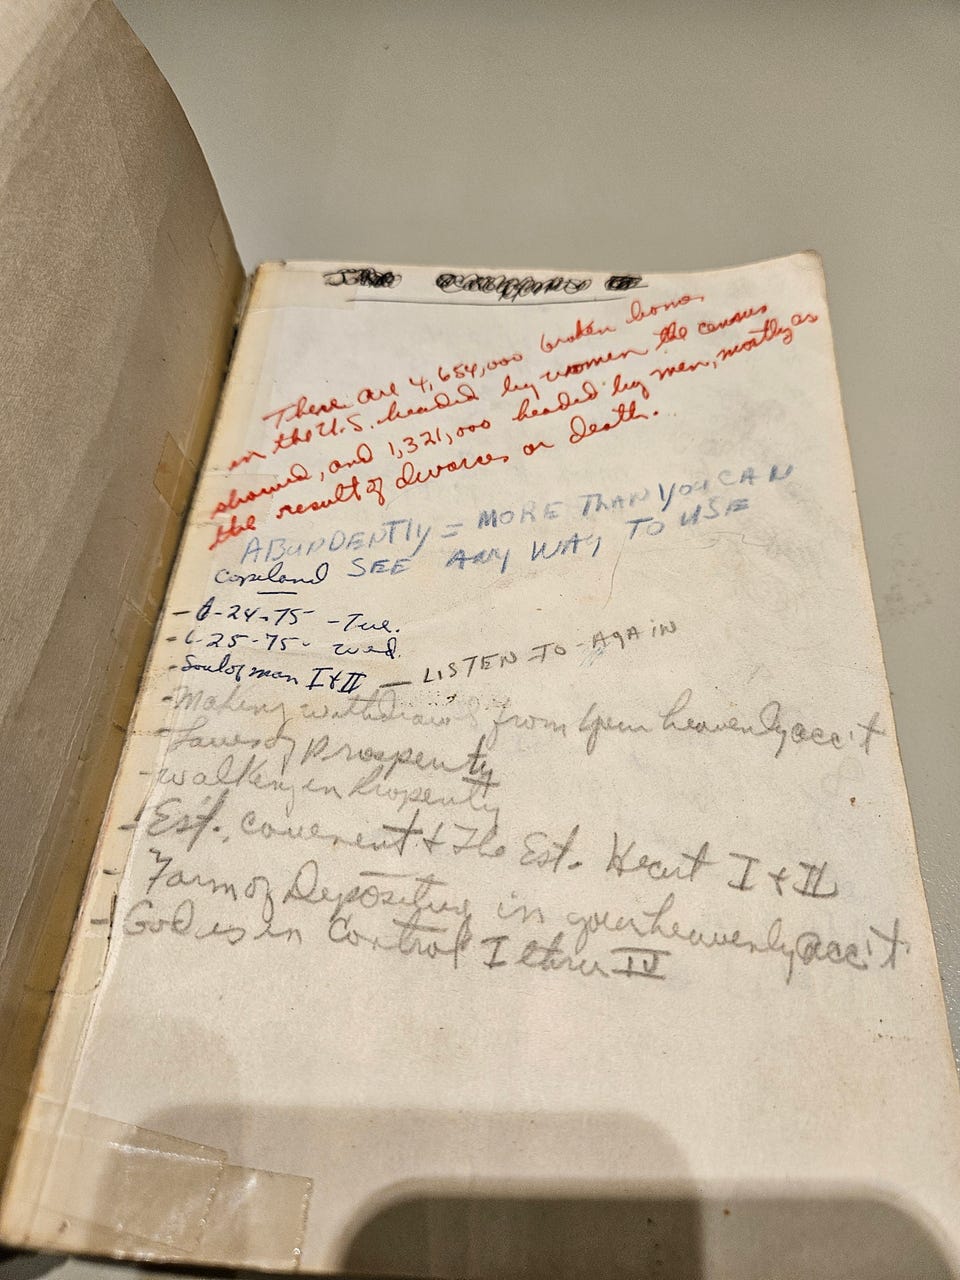 There are 4,654,000 broken homes
in the U.S. headed by women the census
showed, and 1,321,000 headed by men, mostly as
the result of divorces or death.
ABUNDENTLY = MORE THAN YOU CAN
SEE ANY WAY TO USE
Copeland
- 6-24-75 - Tue.
- 6-25-75 - Wed.
- Soul of man I & II — LISTEN TO AGAIN
- Making withdrawls from your heavenly acc't
- Laws of prosperity
- walking in Prosperity
- Est. covenent & The Est. Heart I & II
- Form of Depositing in your heavenly acc't
- God is in Control I thru IV